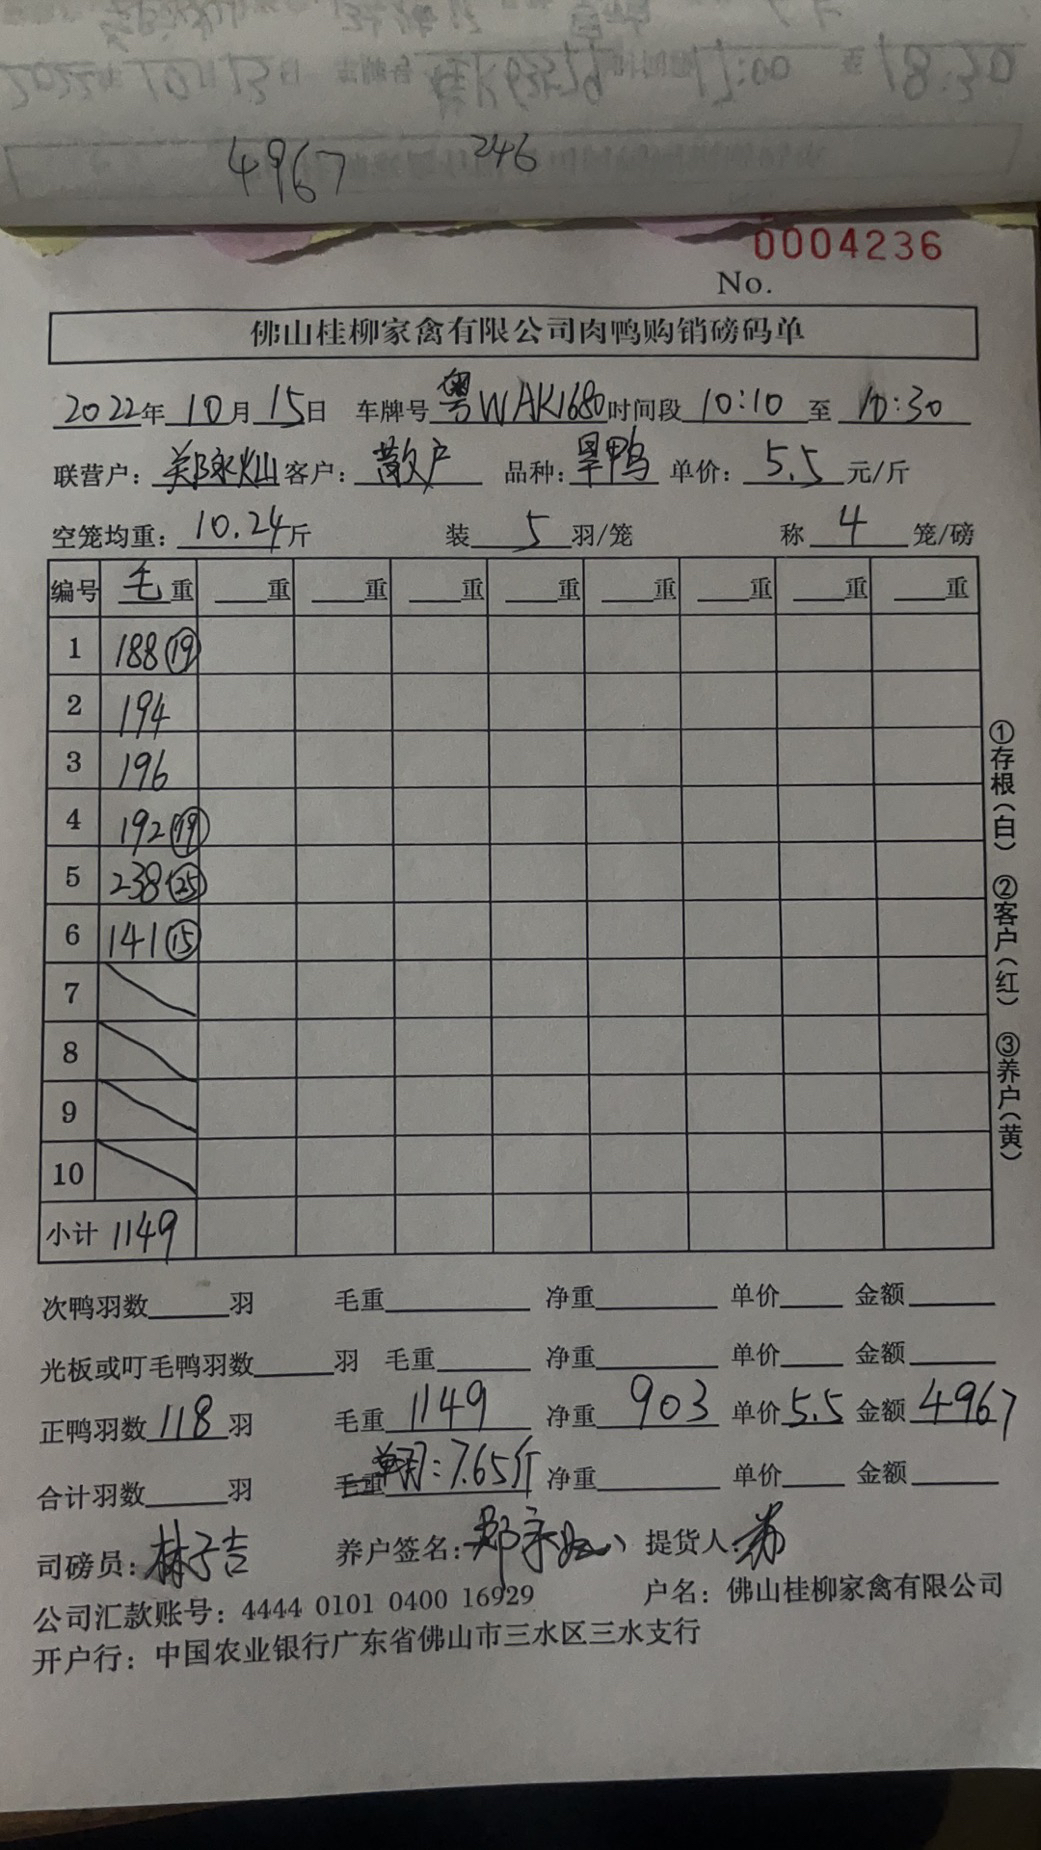 4967 246
0004236
No.
佛山桂柳家禽有限公司肉鸭购销磅码单
2022年 10月 15日 车牌号 粤WAK1680 时间段 10:10 至 10:30
联营户: 郑永灿 客户: 散户 品种: 旱鸭 单价: 5.5 元/斤
空笼均重: 10.24斤 装 5 羽/笼 称 4 笼/磅
编号 毛重 重 重 重 重 重 重 重 重
1 188 19
2 194
3 196
4 192 19
5 238 25
6 141 15
7
8
9
10
小计 1149
①存根(白) ②客户(红) ③养户(黄)
次鸭羽数 羽 毛重 净重 单价 金额
光板或叮毛鸭羽数 羽 毛重 净重 单价 金额
正鸭羽数 118 羽 毛重 1149 净重 903 单价 5.5 金额 4967
合计羽数 羽 毛重 : 7.65斤 净重 单价 金额
司磅员: 林子吉 养户签名: 郑永灿 提货人:
公司汇款账号: 4444 0101 0400 16929 户名: 佛山桂柳家禽有限公司
开户行: 中国农业银行广东省佛山市三水区三水支行